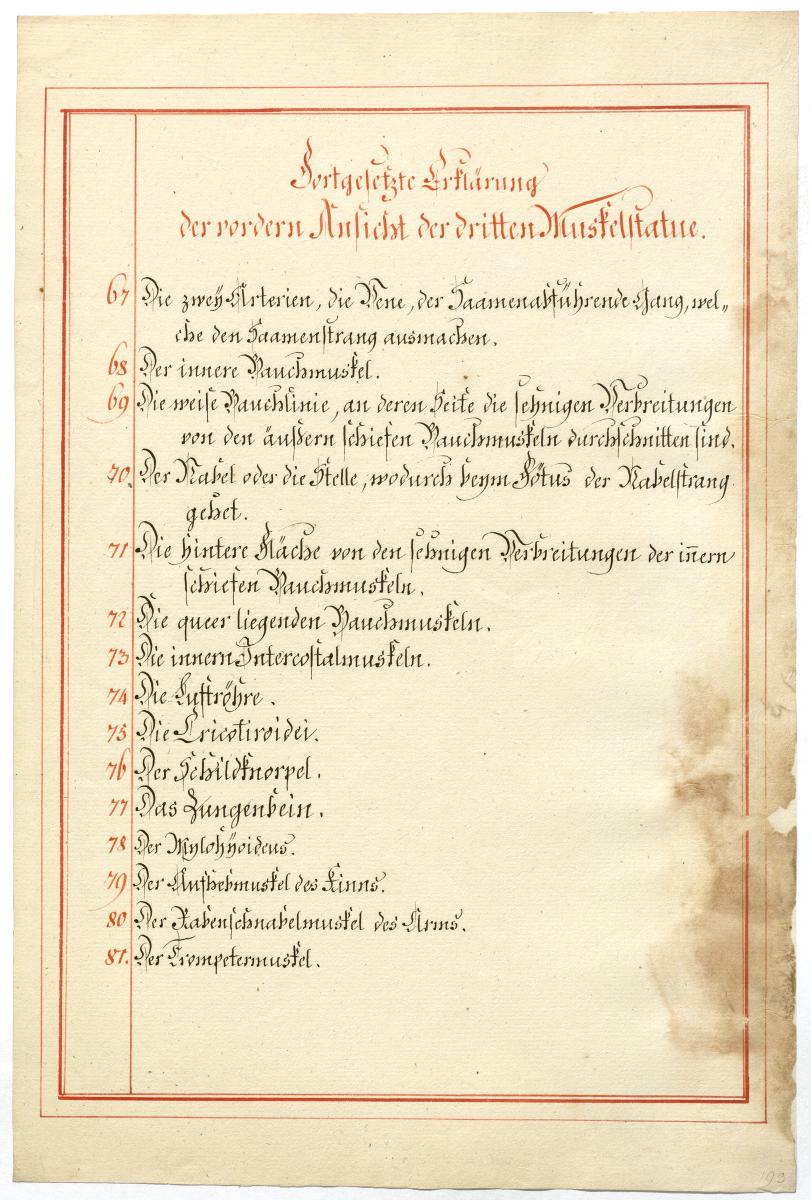 Fortgesetzte Erklärung
der vordern Ansicht der dritten Muskelstatue.
67 Die zwey Arterien, die Vene, der Saamenabführende Gang, wel„
che den Saamenstrang ausmachen.
68 Der innere Bauchmuskel.
69 Die weise Bauchlinie, an deren Seite die sehnigen Verbreitungen
von den äußern schiefen Bauchmuskeln durchschnitten sind.
70. Der Nabel oder die Stelle, wodurch beym Fötus der Nabelstrang
gehet.
71 Die hintere Fläche von den sehnigen Verbreitungen der iñern
schiefen Bauchmuskeln.
72 Die queer liegenden Bauchmuskeln.
73 Die innern Intercostalmuskeln.
74 Die Luftröhre.
75 Die Cricotiroidei.
76 Der Schildknorpel.
77 Das Zungenbein.
78 Der Mylohÿoideus.
79 Der Aufhebmuskel des Kinns.
80 Der Rabenschnabelmuskel des Arms.
81. Der Trompetermuskel.